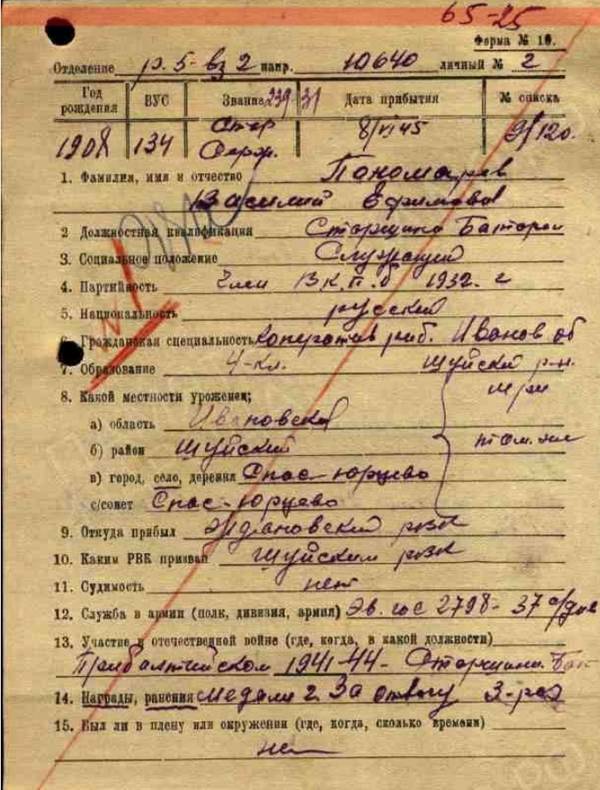 65-25
Форма № 10.
Отделение р. 5-вз 2 напр. 10640 личный № 2
Год рождения ВУС Звание 239-31 Дата прибытия № списка
1908 134 Стар Серж. 8/VI 45 9/120.
1. Фамилия, имя и отчество Пономарев
Василий Ефимович
2 Должностная квалификация Старшина Батареи
3. Социальное положение Служащий
4. Партийность Член В.К.П.б 1932. г
5. Национальность русский
6. Гражданская специальность Иванов об
7. Образование 4-кл. Шуйский р-н.
8. Какой местности уроженец;
а) область Ивановской
б) район Шуйский
в) город, село, деревня Спас-Юрцево
с/совет Спас-Юрцево
9. Откуда прибыл Ждановский рвк
10. Каким РВК призван Шуйским рвк
11. Судимость нет
12. Служба в армии (полк, дивизия, армия) Эв. гос 2798-37
13. Участие в отечественной войне (где, когда, в какой должности)
Прибалтийском 1941-44 - Старшина. Бат
14. Награды, ранения медаль 2. За отвагу 3-раз
15. Был ли в плену или окружении (где, когда, сколько времени)
нет